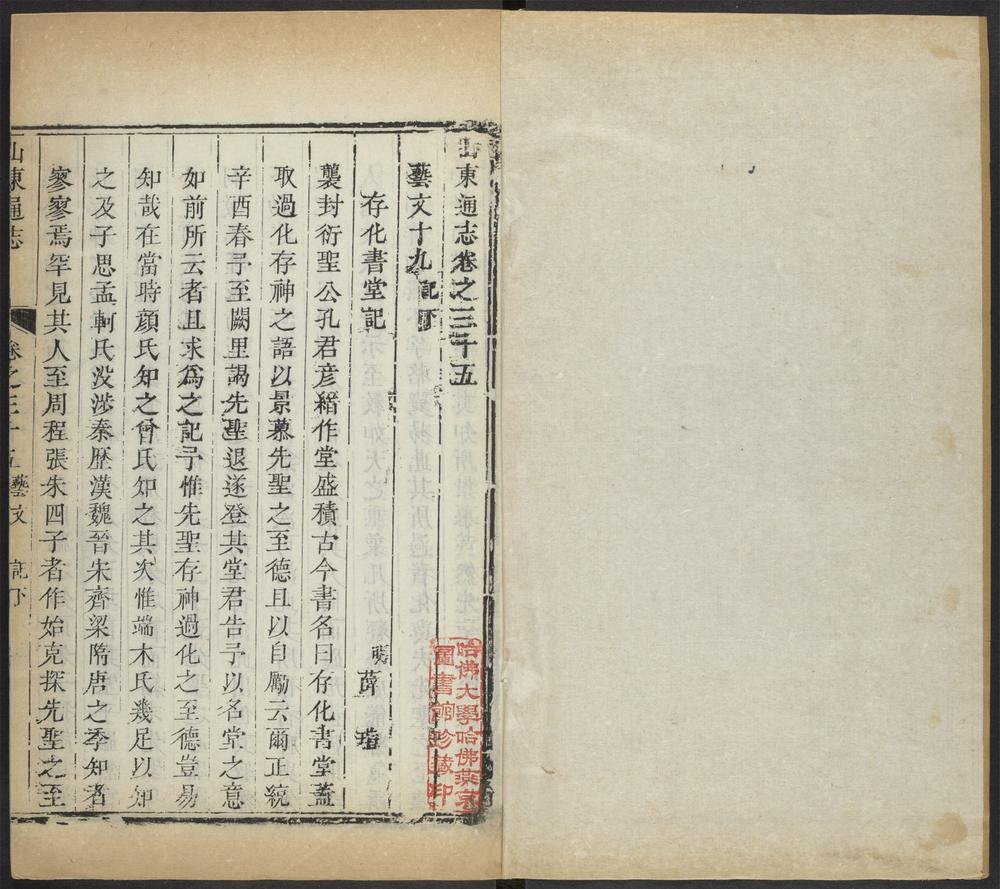 山東通志卷之三十五
藝文十九 記下
存化書堂記
明 薛瑄
襲封衍聖公孔君彦縉作堂盛積古今書名曰存化書堂蓋
取過化存神之語以景慕先聖之至德且以自勵云爾正統
辛酉春予至闕里謁先聖退遂登其堂君告予以名堂之意
如前所云者且求爲之記予惟先聖存神過化之至德豈易
知哉在當時顔氏知之曾氏知之其次惟端木氏幾足以知
之及子思孟軻氏没渉秦歴漢魏晉宋齊梁隋唐之季知者
寥寥焉罕見其人至周程張朱四子者作始克探先聖之至
山東通志
卷之三十五 藝文 記下
哈佛大學哈佛燕京
圖書館珍藏印